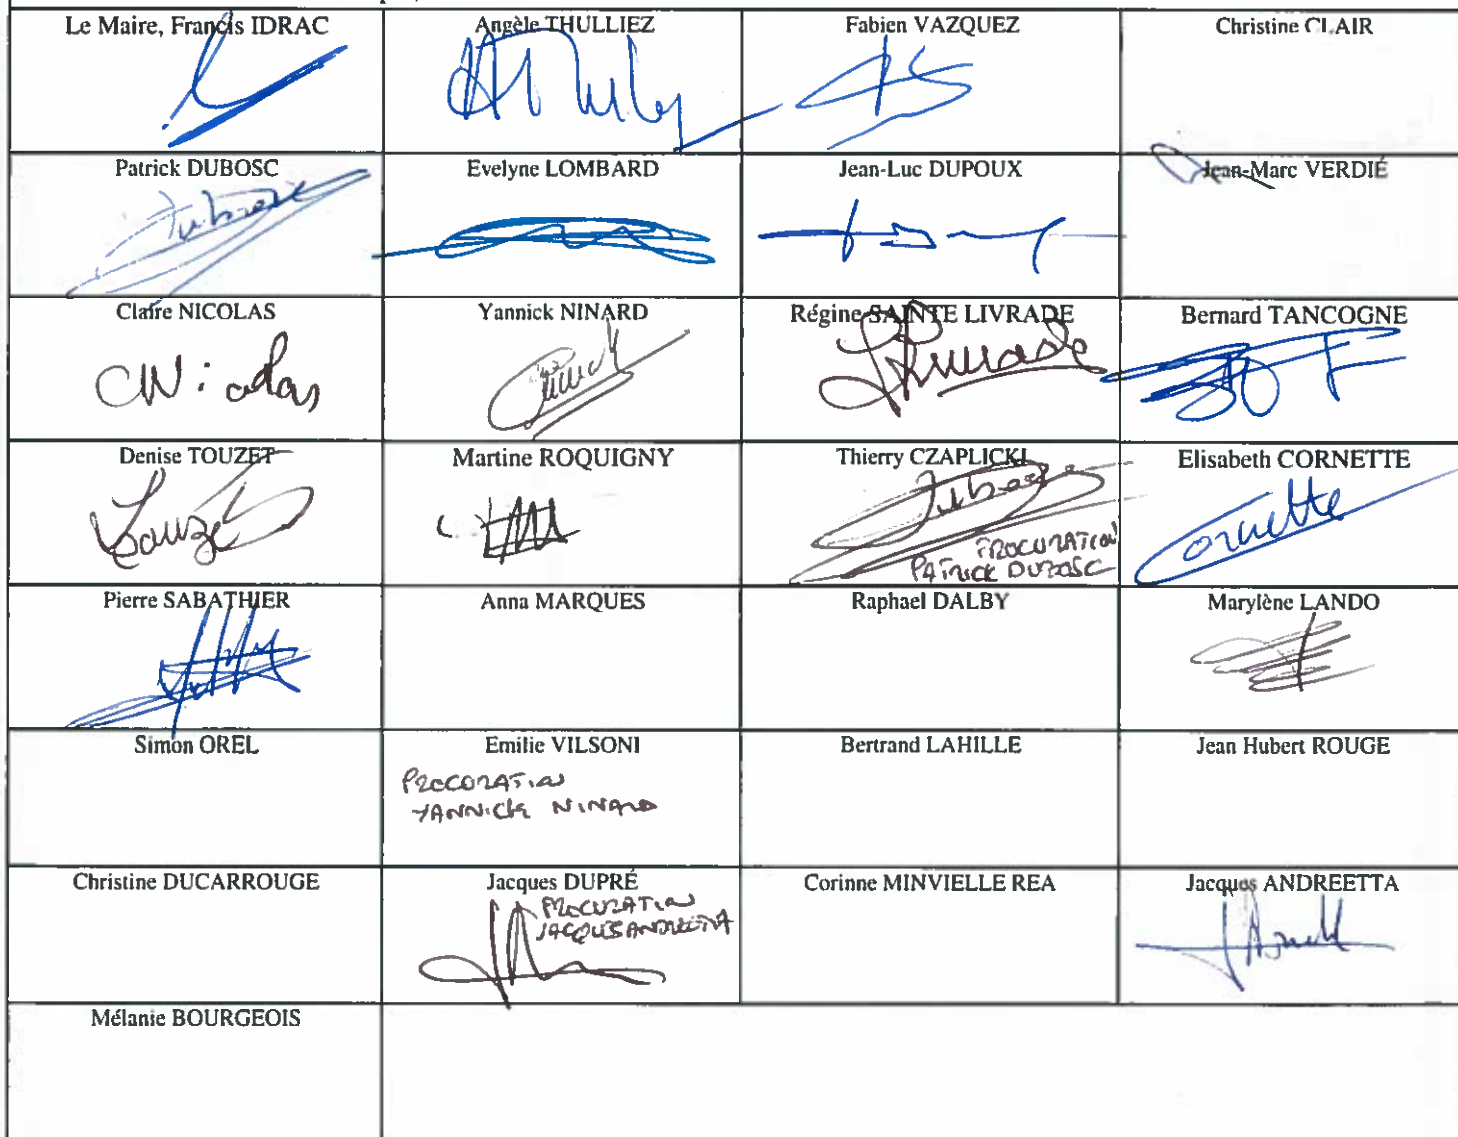 Le Maire, Francis IDRAC
Angèle THULLIEZ
Fabien VAZQUEZ
Christine CLAIR
Patrick DUBOSC
Dubosc
Evelyne LOMBARD
Jean-Luc DUPOUX
Jean-Marc VERDIÉ
Claire NICOLAS
CNicolas
Yannick NINARD
Régine SAINTE LIVRADE
Bernard TANCOGNE
Denise TOUZET
Touzet
Martine ROQUIGNY
Thierry CZAPLICKI
Dubosc
PROCURATION
PATRICK DUBOSC
Elisabeth CORNETTE
Cornette
Pierre SABATHIER
Anna MARQUES
Raphael DALBY
Marylène LANDO
Simon OREL
Emilie VILSONI
PROCURATION
YANNICK NINARD
Bertrand LAHILLE
Jean Hubert ROUGE
Christine DUCARROUGE
Jacques DUPRÉ
PROCURATION
JACQUES ANDREETTA
Corinne MINVIELLE REA
Jacques ANDREETTA
Mélanie BOURGEOIS